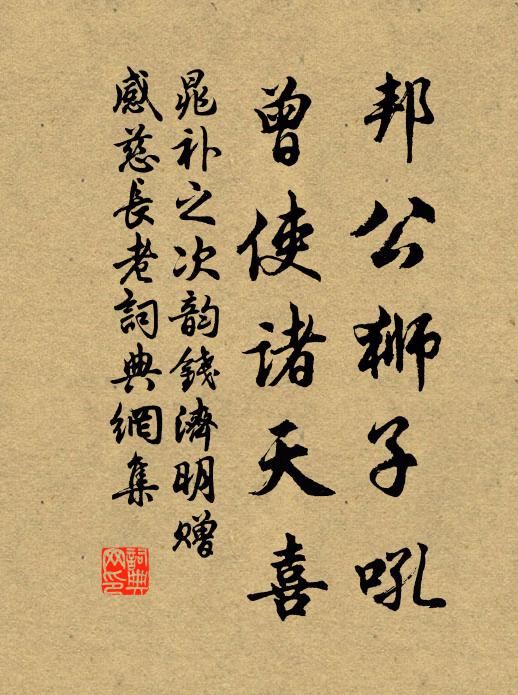 邦公狮子吼
曾使诸天喜
晁补之次韵錢濟明赠
感慈長老詞典網集
詞典网印